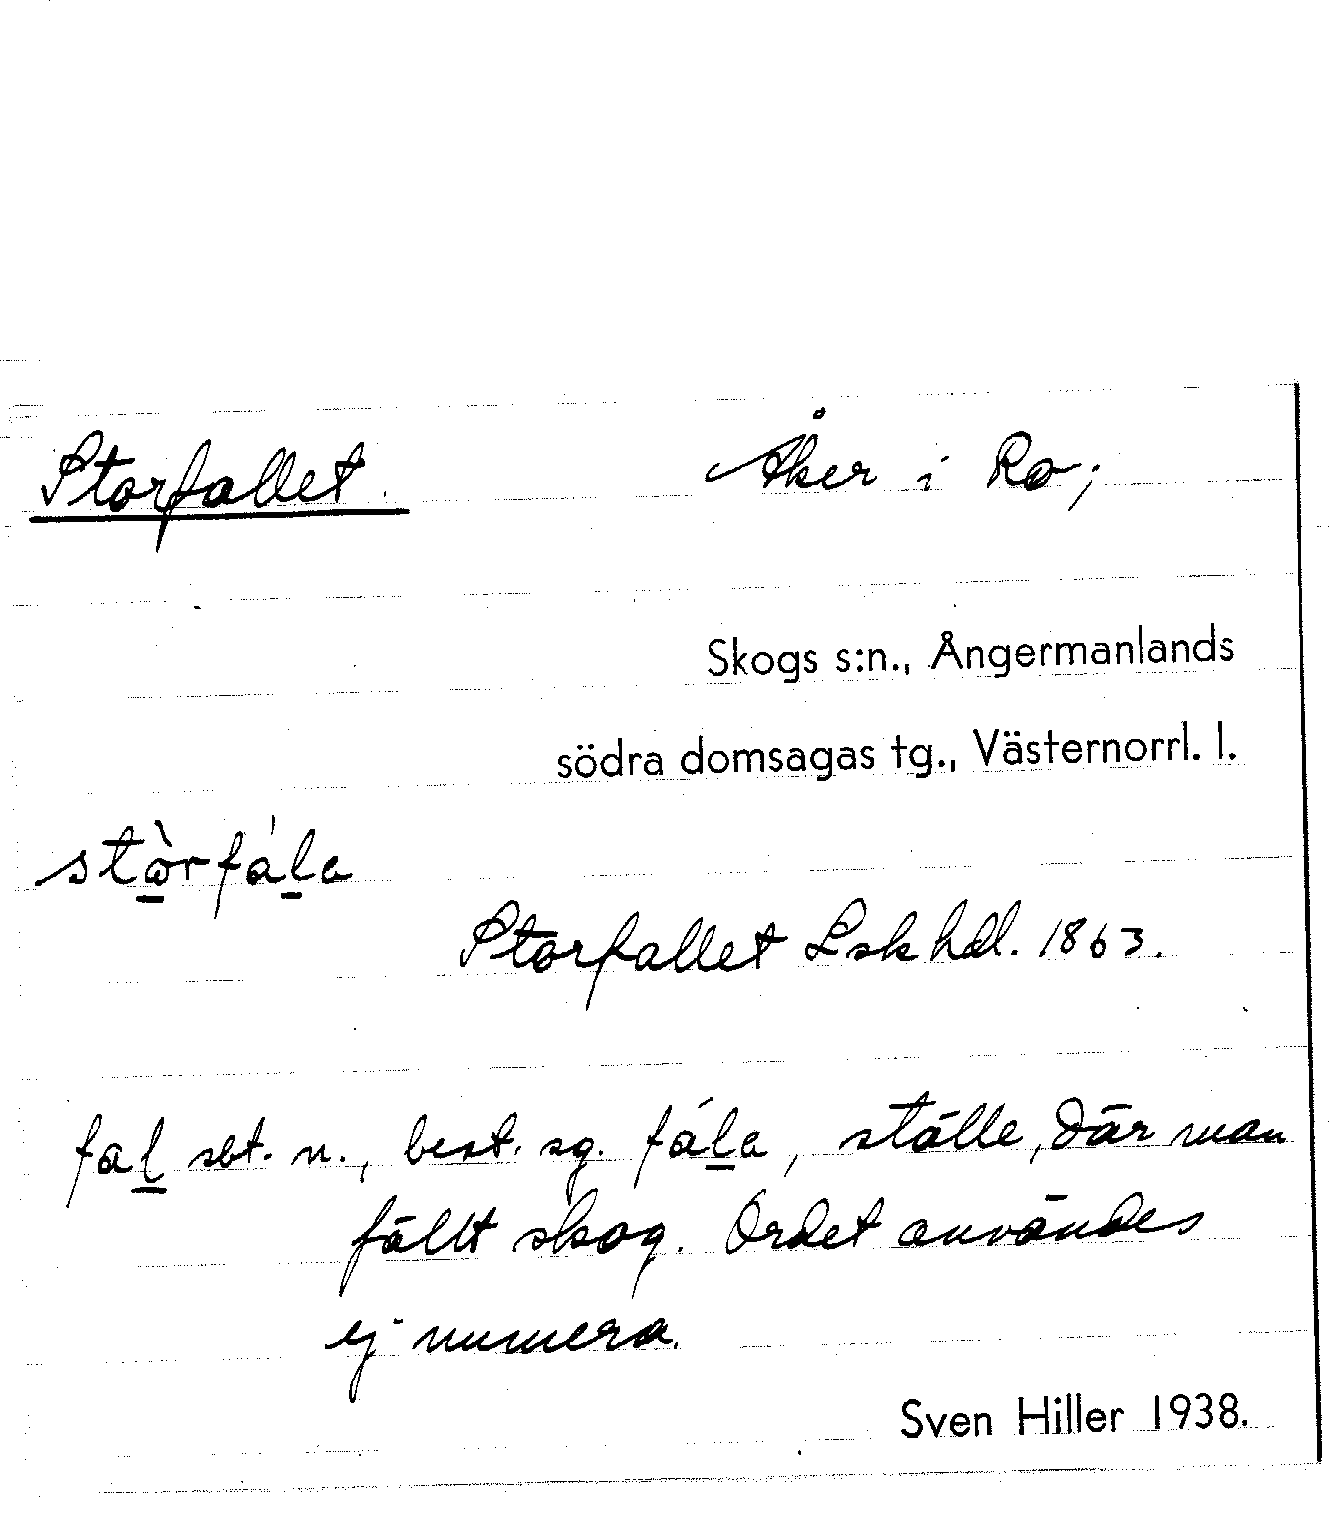 Storfallet.
Åker i Ro;
Skogs s:n., Ångermanlands
södra domsagas tg., Västernorrl. l.
stò̱rfáḻa
Storfallet Lskhdl. 1863.
faḻ sbt. n., best. sg. fáḻa, ställe, där man
fällt skog. Ordet användes
ej numera.
Sven Hiller 1938.